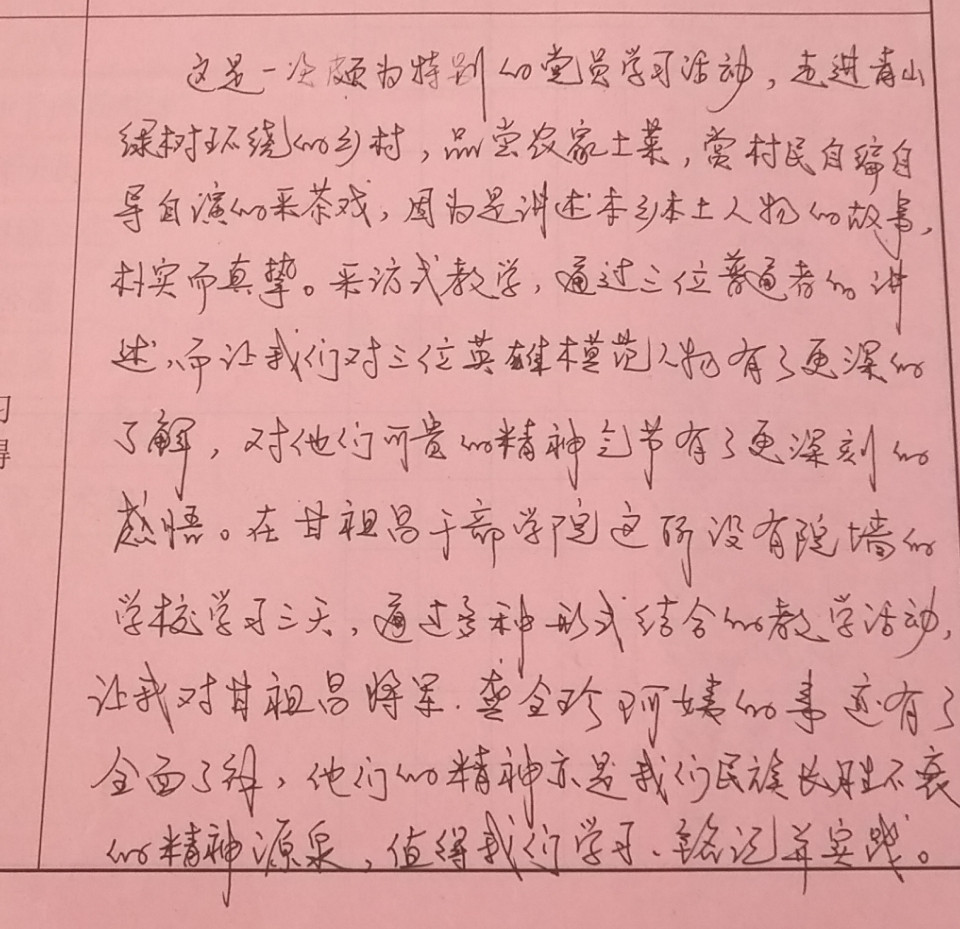 这是一次颇为特别的党员学习活动，走进青山
绿树环绕的乡村，品尝农家土菜，赏村民自编自
导自演的采茶戏，因为是讲述本乡本土人物的故事，
朴实而真挚。采访式教学，通过三位普通者的讲
述，而让我们对三位英雄模范人物有了更深的
了解，对他们可贵的精神气节有了更深刻的
感悟。在甘祖昌干部学院这所没有院墙的
学校学习三天，通过多种形式结合的教学活动，
让我对甘祖昌将军、龚全珍阿姨的事迹有了
全面了解，他们的精神亦是我们民族长胜不衰
的精神源泉，值得我们学习、铭记并实践。
习
得